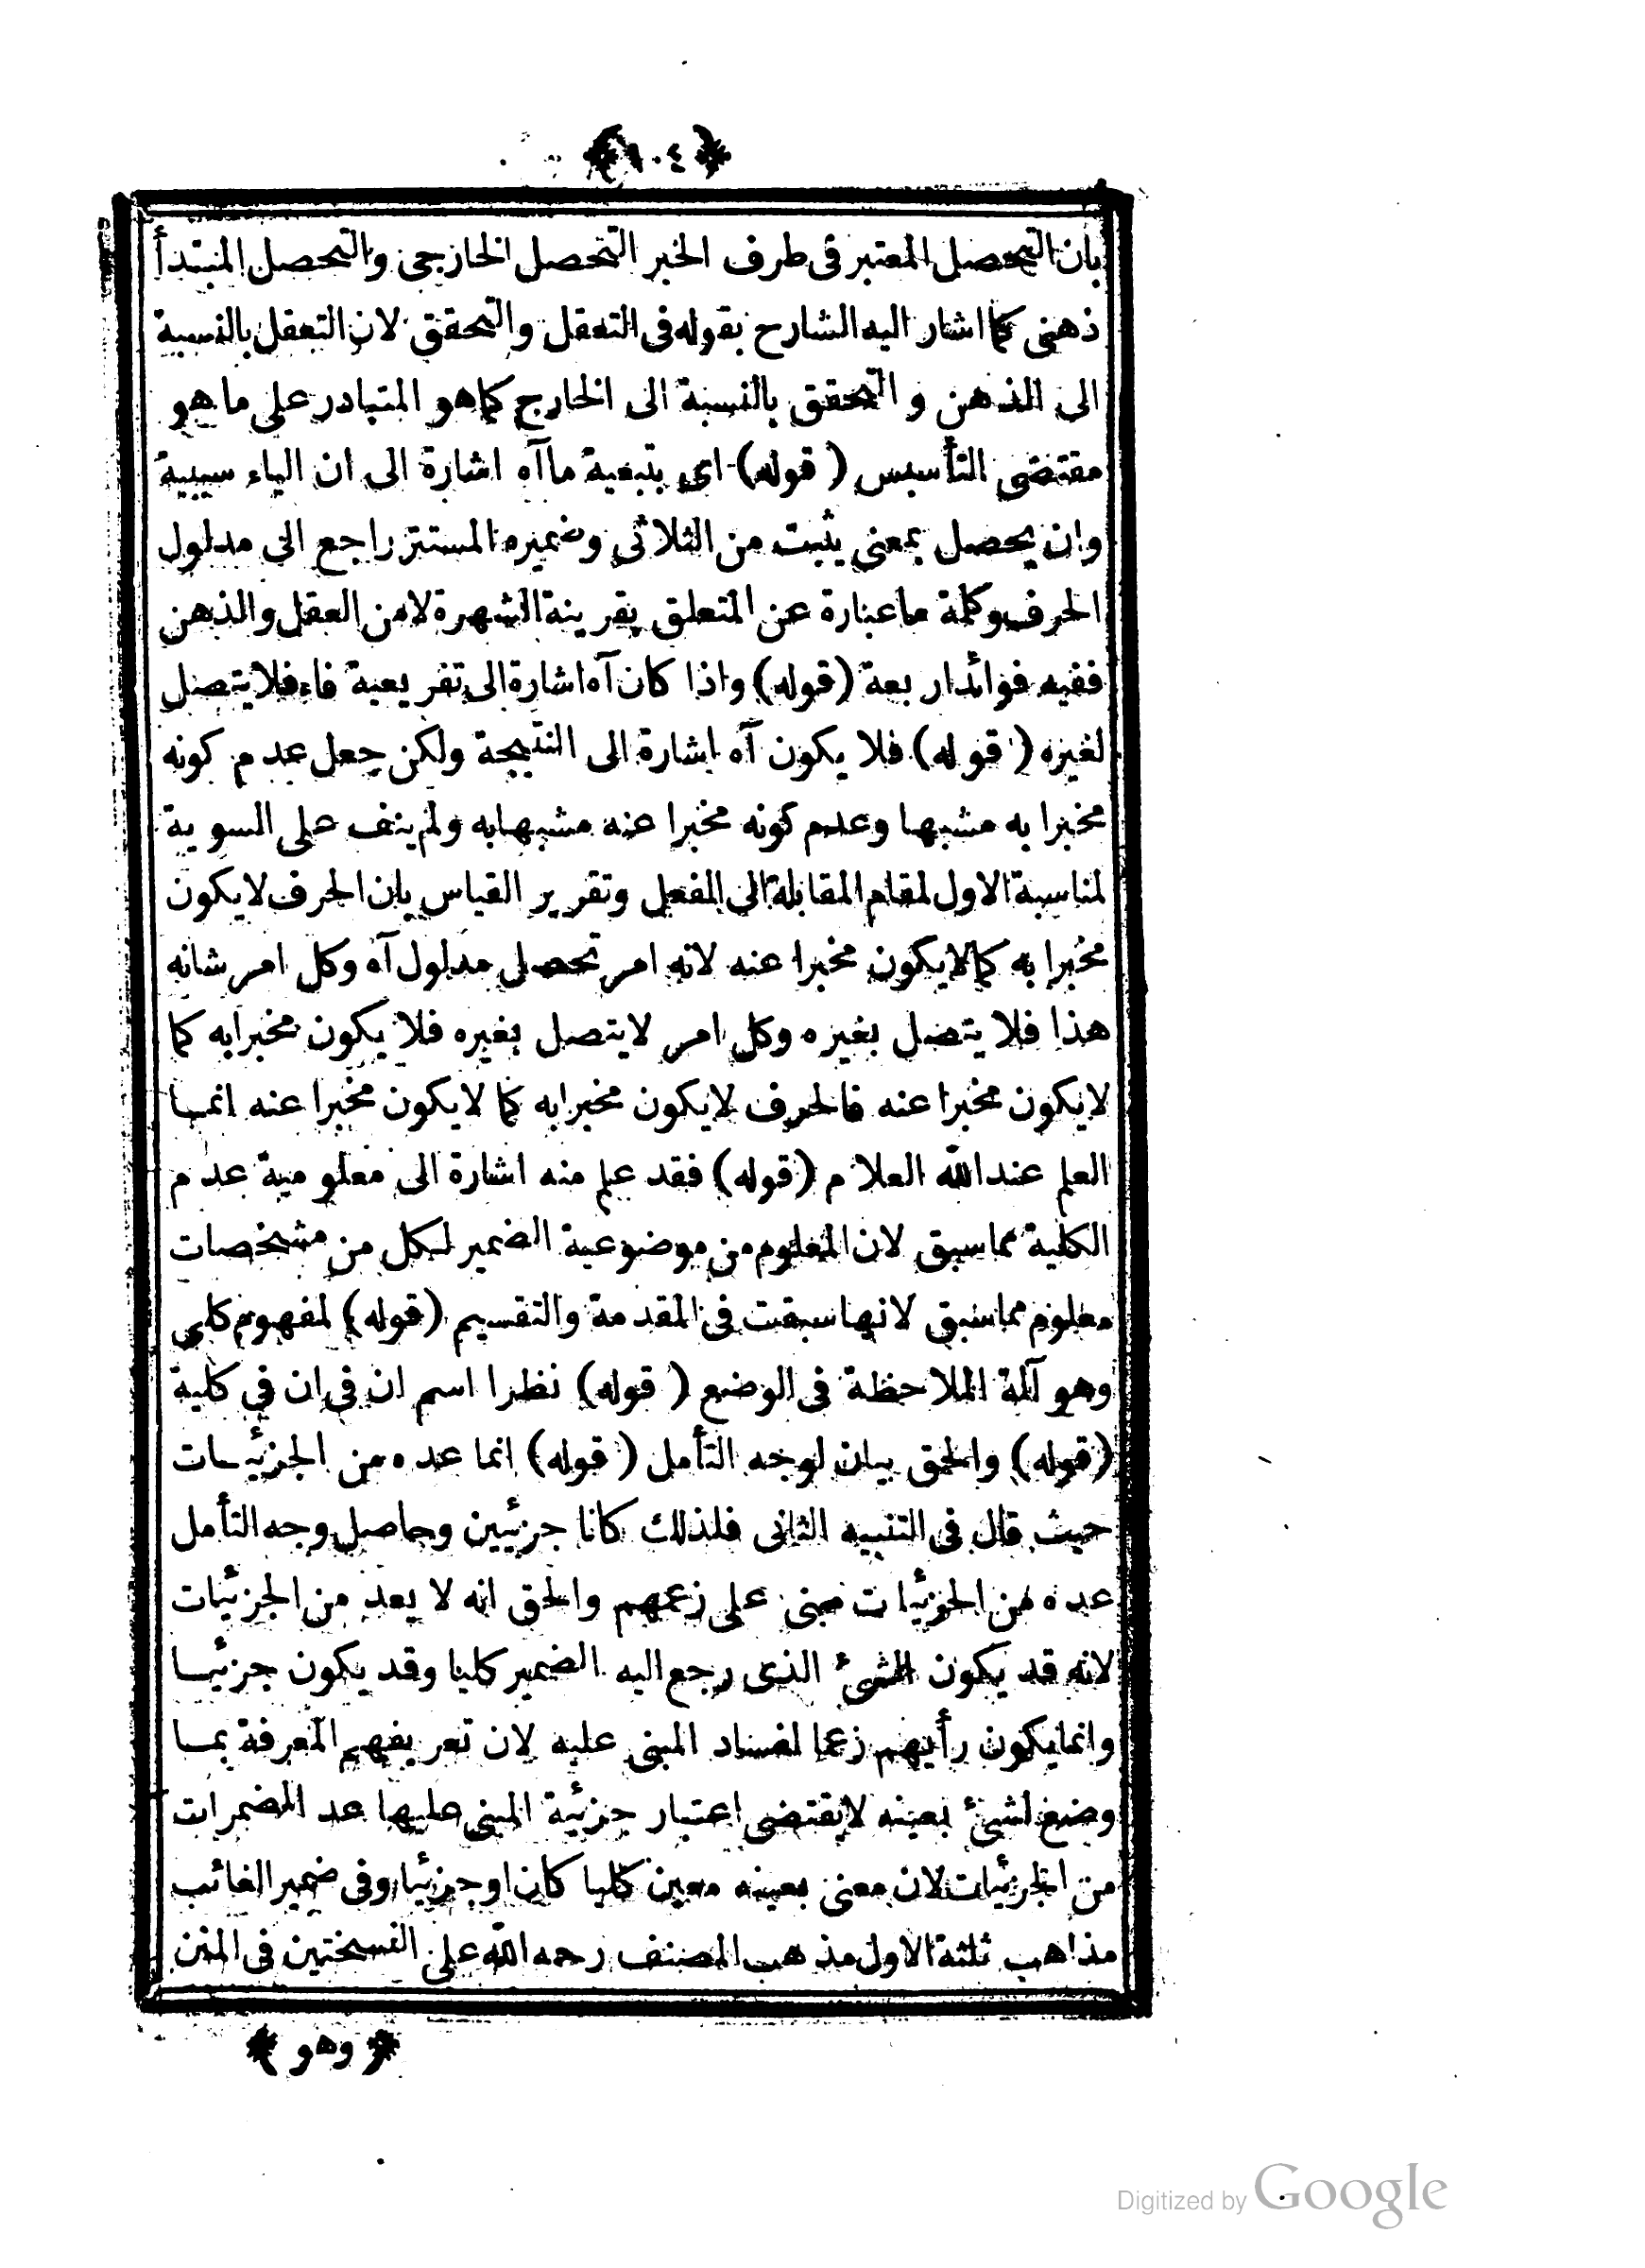 ﴿١٠٤﴾
بان التحصل المعتبر فى طرف الخبر التحصل الخارجى والتحصل المبتدأ
ذهنى كما اشار اليه الشارح بقوله فى التعقل والتحقق لان التعقل بالنسبة
الى الذهن و التحقق بالنسبة الى الخارج كما هو المتبادر على ما هو
مقتضى التأسيس ( قوله) اى بتبعية ما آه اشارة الى ان الباء سببية
وان يحصل بمعنى يثبت من الثلاثى وضميره المستتر راجع الى مدلول
الحرف وكلمة ما عبارة عن المتعلق بقرينة الشهرة لا من العقل والذهن
ففيه فوائد اربعة (قوله) واذا كان آه اشارة الى تفريعية فاء فلا يتصل
لغيره ( قوله) فلا يكون آه اشارة الى النتيجة ولكن جعل عدم كونه
مخبرا به مشبها وعدم كونه مخبرا عنه مشبها به ولم ينف على السوية
لمناسبة الاول لمقام المقابلة الى الفعل وتقرير القياس بان الحرف لا يكون
مخبرا به كما لا يكون مخبرا عنه لانه امر تحصل مدلول آه وكل امر شانه
هذا فلا يتصل بغيره وكل امر لا يتصل بغيره فلا يكون مخبرا به كما
لا يكون مخبرا عنه فالحرف لا يكون مخبرا به كما لا يكون مخبرا عنه انما
العلم عند الله العلام (قوله) فقد علم منه اشارة الى معلومية عدم
الكلية مما سبق لان المعلوم من موضوعية الضمير لكل من مشخصات
معلوم مما سبق لانها سبقت فى المقدمة والتقسيم (قوله) لمفهوم كلى
وهو آلة الملاحظة فى الوضع ( قوله) نظرا اسم ان فى ان فى كلية
(قوله) والحق بيان لوجه التأمل ( قوله) انما عده من الجزئيات
حيث قال فى التنبيه الثانى فلذلك كانا جزئيين وحاصل وجه التأمل
عده من الجزئيات مبنى على زعمهم والحق انه لا يعد من الجزئيات
لانه قد يكون الشئ الذى رجع اليه الضمير كليا وقد يكون جزئيا
وانما يكون رأيهم زعما لفساد المبنى عليه لان تعريفهم المعرفة بما
وضع لشئ بعينه لا يقتضى اعتبار جزئية المبنى عليها عد المضمرات
من الجزئيات لان معنى بعينه معين كليا كان او جزئيا وفى ضمير الغائب
مذاهب ثلثة الاول مذهب المصنف رحمه الله على النسختين فى المتن
﴿ وهو ﴾
Digitized by Google